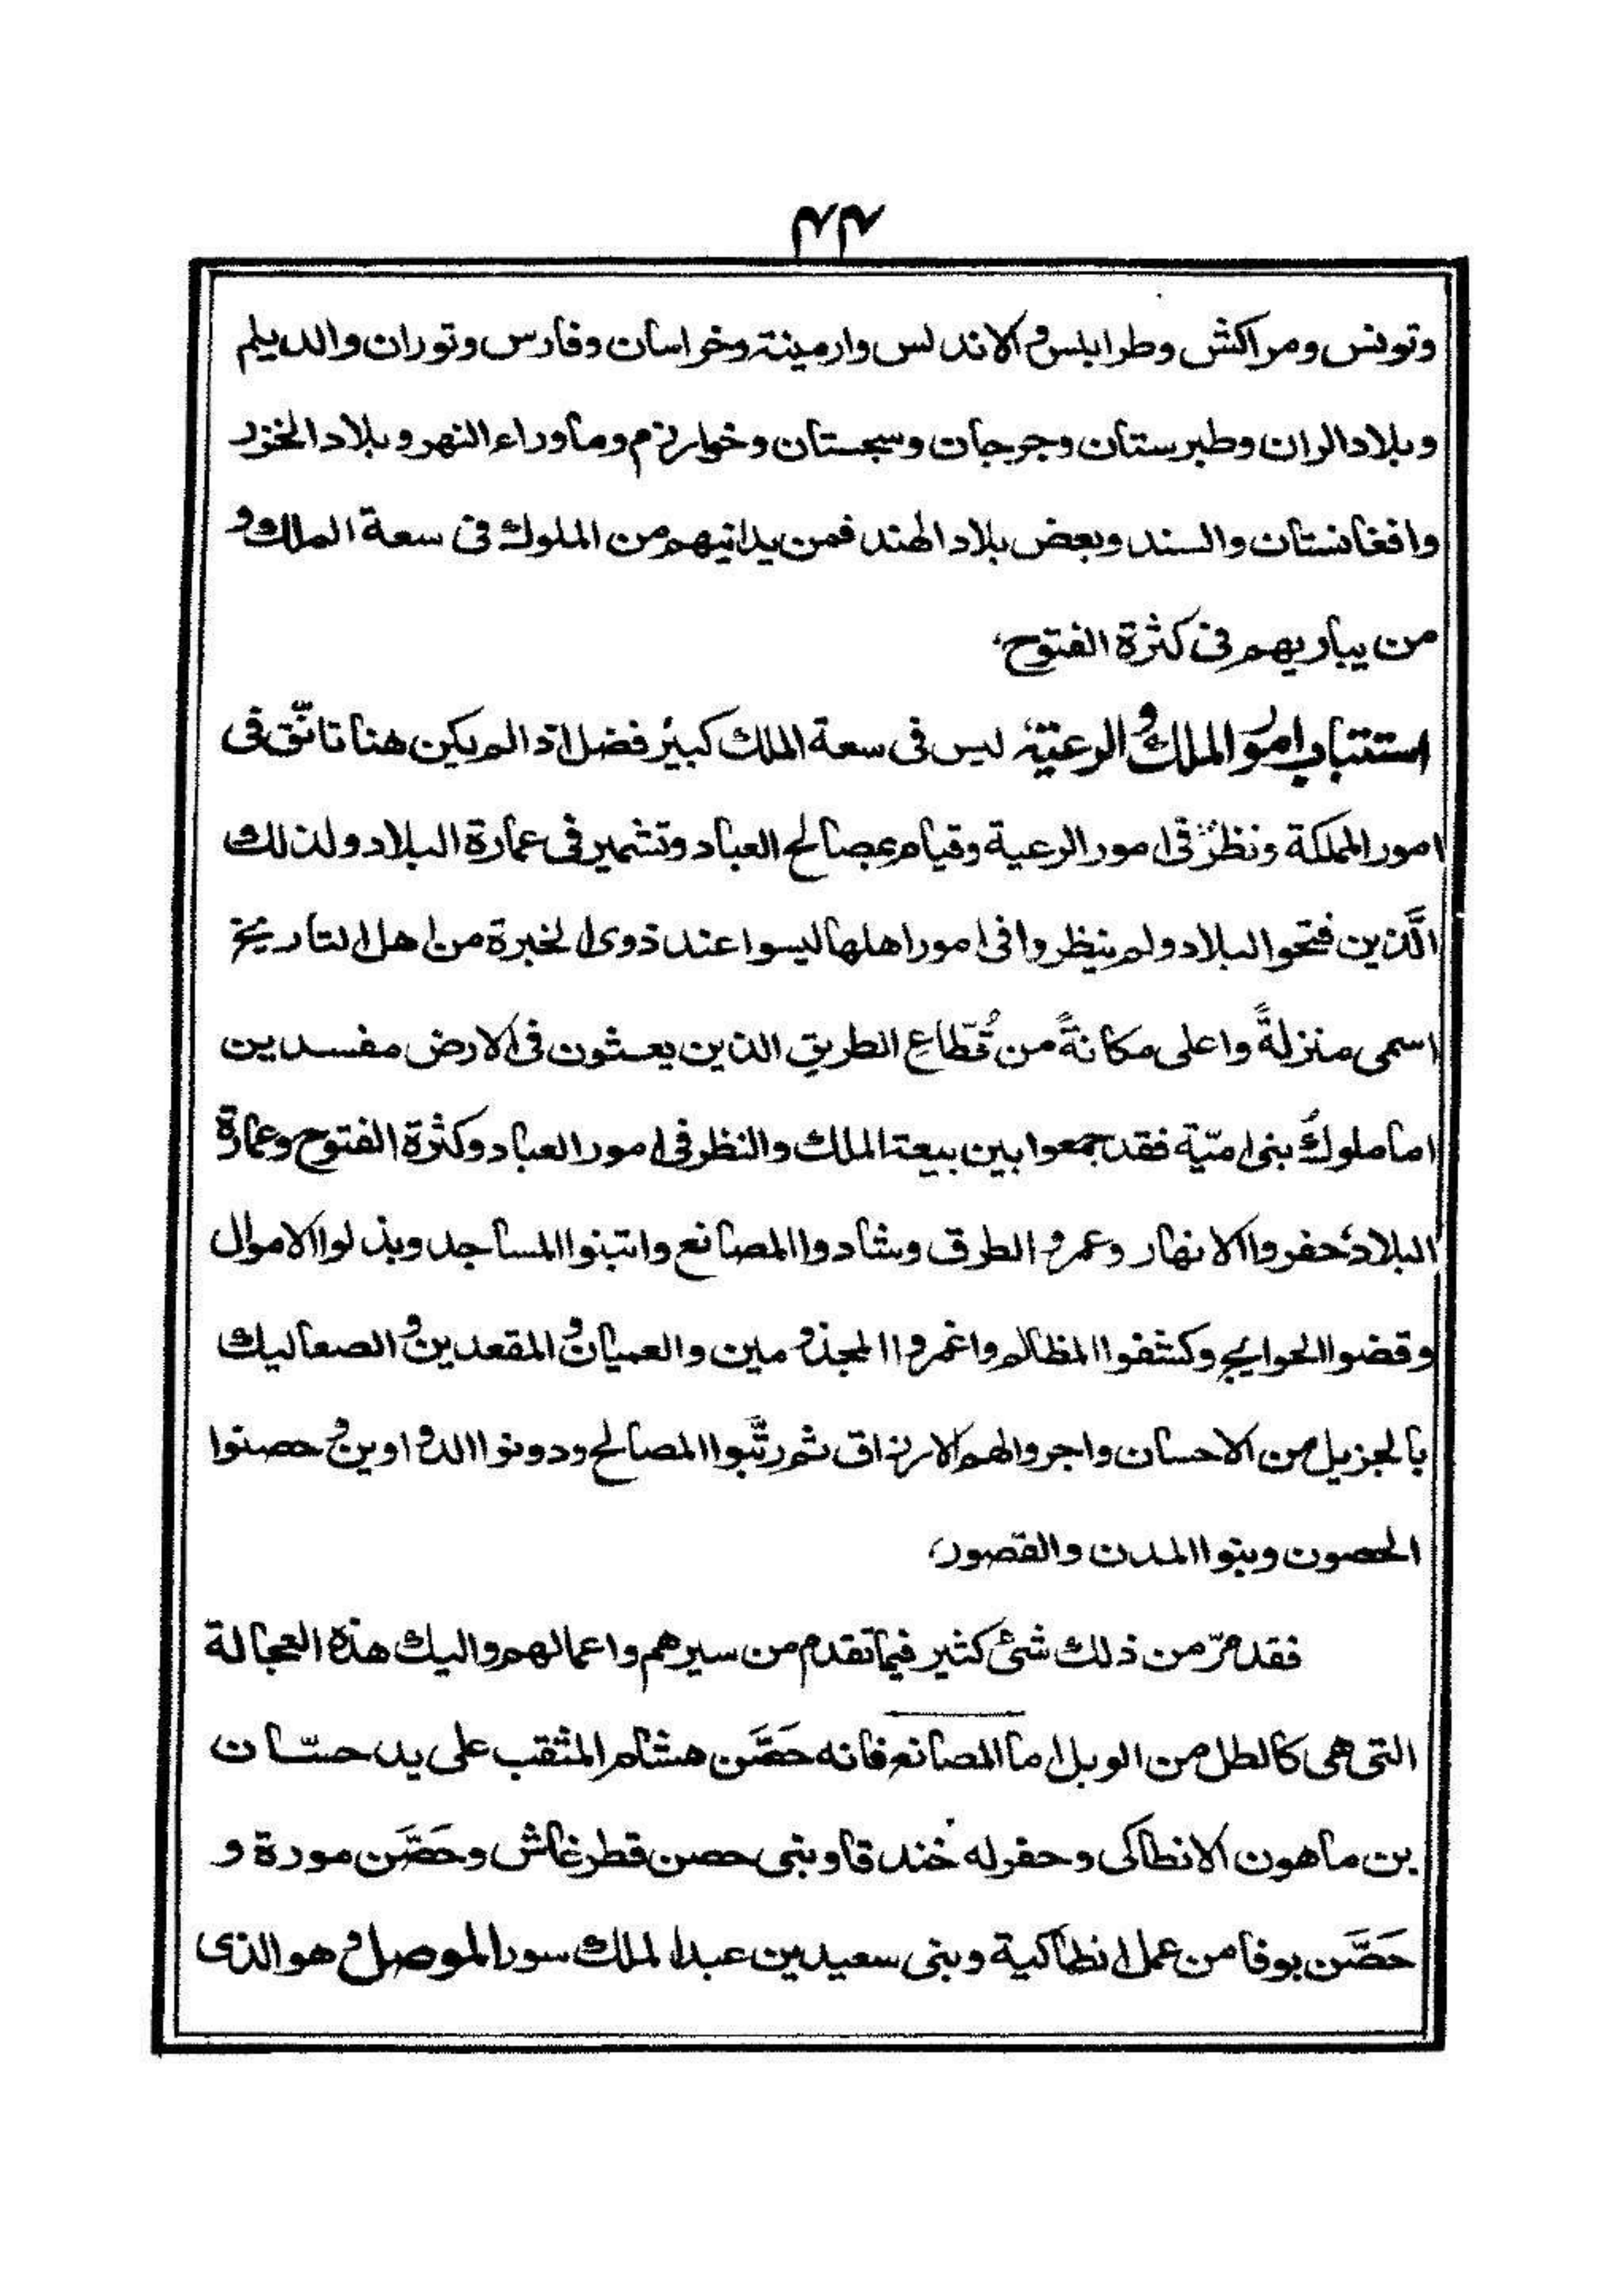 ٤٤
وتونس ومراكش وطرابلس والاندلس وارمينة وخراسان وفارس وتوران والديلم
وبلاد الران وطبرستان وجرجان وسجستان وخوارزم وماوراء النهر وبلاد الخزر
وافغانستان والسند وبعض بلاد الهند فمن يدانيهم من الملوك فى سعة الملك و
من يباريهم فى كثرة الفتوح،
استتباب امور الملك والرعيّة ليس فى سعة الملك كبير فضل اذا لم يكن هنا تانّق فى
امور المملكة ونظرٌ فى امور الرعية وقيام بمصالح العباد وتشمير فى عمارة البلاد ولذلك
الَّذين فتحوا البلاد ولم ينظروا فى امور اهلها ليسوا عند ذوى الخبرة من اهل التاريخ
اسمى منزلةً واعلى مكانةً من قُطّاع الطريق الذين يعثون فى الارض مفسدين
اما ملوك بنى اميّة فقد جمعوا بين بيعة الملك والنظر فى امور العباد وكثرة الفتوح وعمارة
البلاد، حفروا الانهار وعمروا الطرق وشادوا المصانع وابتنوا المساجد وبذلوا الاموال
وقضوا الحوايج وكشفوا المظالم واغمروا المجذومين والعميان والمقعدين والصعاليك
بالجزيل من الاحسان واجروا لهم الارزاق ثم رتَّبوا المصالح ودونوا الدواوين وحصنوا
الحصون وبنوا المدن والقصور،
فقد مرّ من ذلك شئ كثير فيما تقدم من سيرهم واعمالهم واليك هذه العجالة
التى هى كالطل من الوبل اما المصانع فانه حَصَّن هشام المثقب على يد حسّان
بن ماهون الانطاكى وحفر له خندقا وبنى حصن قطرغاش وحَصَّن مورة و
حَصَّن بوفا من عمل انطاكية وبنى سعيد بن عبد الملك سور الموصل وهو الذى